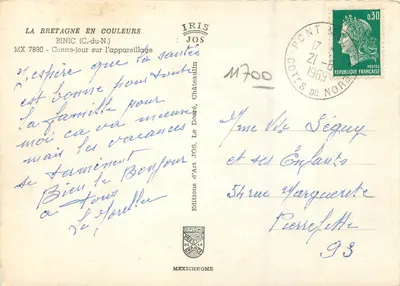 LA BRETAGNE EN COULEURS
BINIC (C.-du-N.)
MX 7890 - Contre-jour sur l'appareillage
IRIS
JOS
J'espère que ta santée
est bonne pour toute
la famille pour
moi ca va mieux
mais les vacances
se terminent
Bien le Bonjour
a tous
Editions d'Art JOS, Le Doaré, Châteaulin
MEXICHROME
11700
PONT
17
21-8
1969
COTES DU NORD
0,30
POSTES
REPUBLIQUE FRANÇAISE
Mme Vve Séguy
et ses Enfants
54 rue Marguerite
Pierrefitte
93